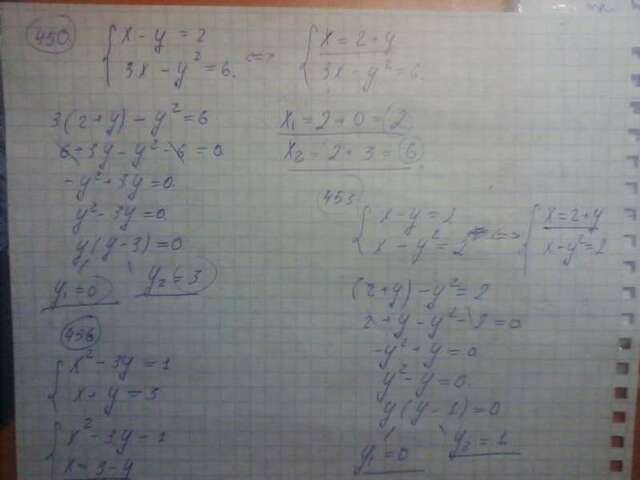 450.
{ x - y = 2
3x - y² = 6. <=> { x = 2 + y
3x - y² = 6.
3(2+y) - y² = 6
6 + 3y - y² - 6 = 0
-y² + 3y = 0
y² - 3y = 0
y(y - 3) = 0
y₁ = 0 y₂ = 3
x₁ = 2 + 0 = 2
x₂ = 2 + 3 = 6
453
{ x - y = 2
x - y² = 2 <=> { x = 2 + y
x - y² = 2
(2+y) - y² = 2
2 + y - y² - 2 = 0
-y² + y = 0
y² - y = 0.
y(y - 1) = 0
y₁ = 0 y₂ = 1
456
{ x² - 3y = 1
x + y = 3
{ x² - 3y - 1
x = 3 - y